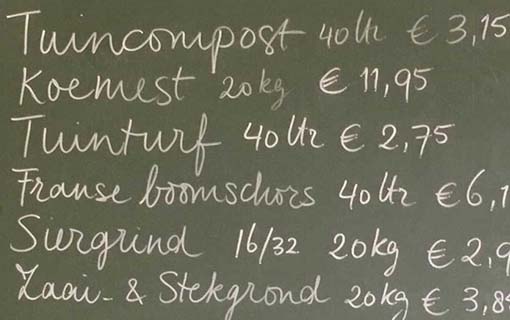 Tuincompost 40 ltr € 3,15
Koemest 20 kg € 11,95
Tuinturf 40 ltr € 2,75
Franse boomschors 40 ltr € 6,1
Siergrind 16/32 20 kg € 2,9
Zaai- & Stekgrond 20 kg € 3,8